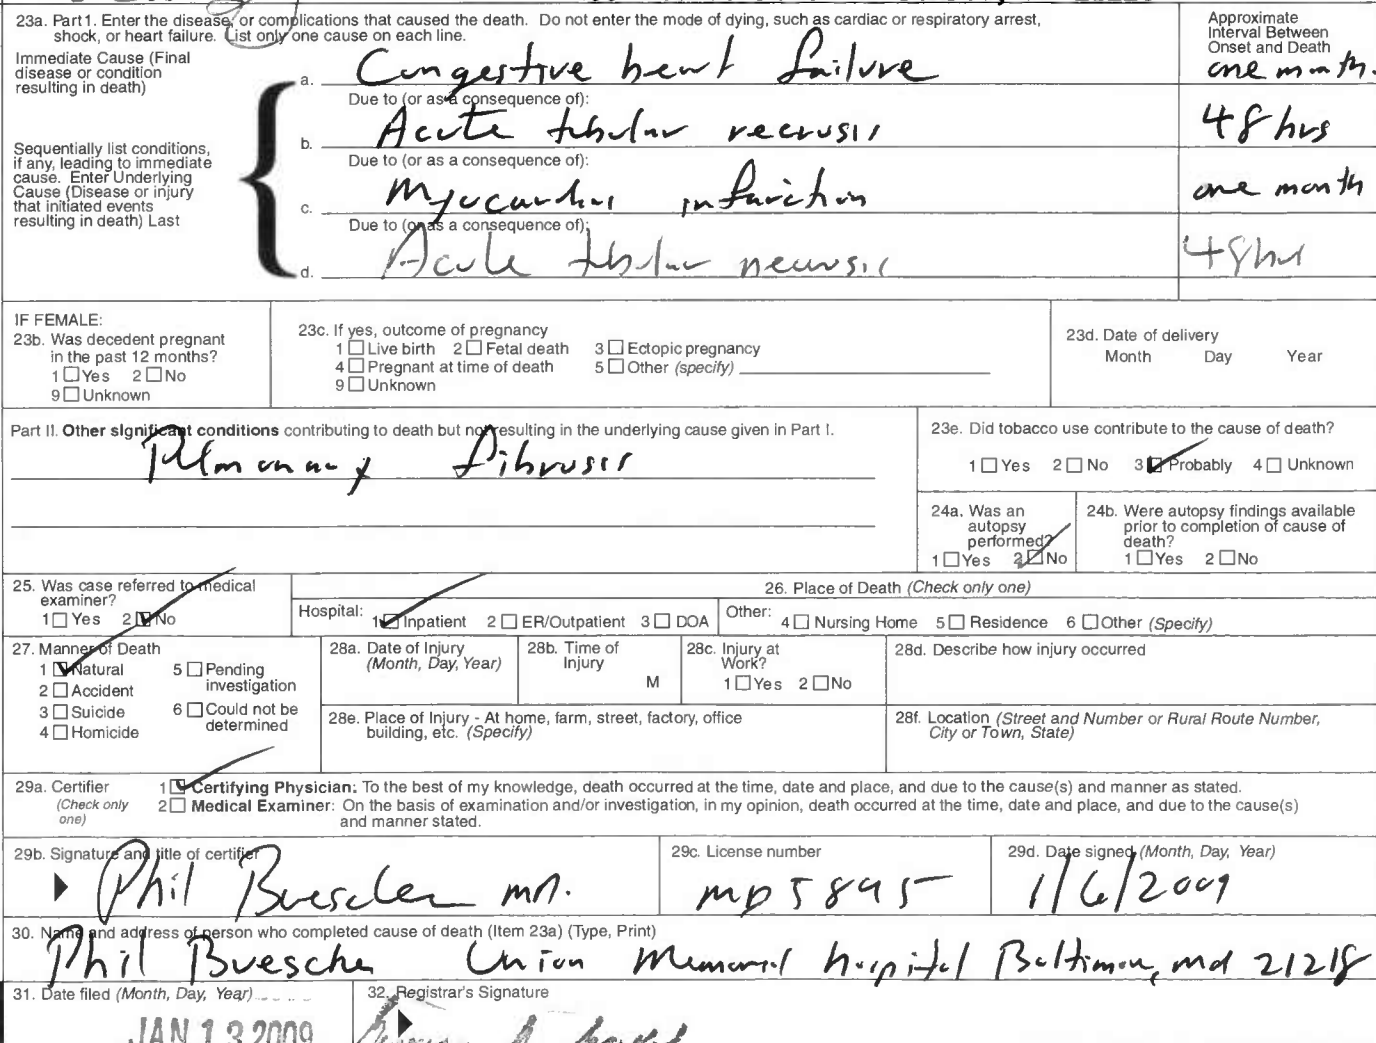 23a. Part 1. Enter the disease, or complications that caused the death. Do not enter the mode of dying, such as cardiac or respiratory arrest,
shock, or heart failure. List only one cause on each line.
Approximate
Interval Between
Onset and Death
Immediate Cause (Final
disease or condition
resulting in death)
a. Congestive heart failure one month.
Due to (or as a consequence of):
b. Acute tubular necrosis 48 hrs
Sequentially list conditions,
if any, leading to immediate
cause. Enter Underlying
Cause (Disease or injury
that initiated events
resulting in death) Last
Due to (or as a consequence of):
c. Myocardial infarction one month
Due to (or as a consequence of):
d. Acute tubular necrosis 48hr
IF FEMALE:
23b. Was decedent pregnant
in the past 12 months?
1 Yes 2 No
9 Unknown
23c. If yes, outcome of pregnancy
1 Live birth 2 Fetal death 3 Ectopic pregnancy
4 Pregnant at time of death 5 Other (specify)
9 Unknown
23d. Date of delivery
Month Day Year
Part II. Other significant conditions contributing to death but not resulting in the underlying cause given in Part I.
Pulmonary fibrosis
23e. Did tobacco use contribute to the cause of death?
1 Yes 2 No 3 Probably 4 Unknown
24a. Was an
autopsy
performed?
1 Yes 2 No
24b. Were autopsy findings available
prior to completion of cause of
death?
1 Yes 2 No
25. Was case referred to medical
examiner?
1 Yes 2 No
26. Place of Death (Check only one)
Hospital: 1 Inpatient 2 ER/Outpatient 3 DOA Other: 4 Nursing Home 5 Residence 6 Other (Specify)
27. Manner of Death
1 Natural 5 Pending
investigation
2 Accident
3 Suicide 6 Could not be
determined
4 Homicide
28a. Date of Injury
(Month, Day, Year)
28b. Time of
Injury
M
28c. Injury at
Work?
1 Yes 2 No
28d. Describe how injury occurred
28e. Place of Injury - At home, farm, street, factory, office
building, etc. (Specify)
28f. Location (Street and Number or Rural Route Number,
City or Town, State)
29a. Certifier
(Check only
one)
1 Certifying Physician: To the best of my knowledge, death occurred at the time, date and place, and due to the cause(s) and manner as stated.
2 Medical Examiner: On the basis of examination and/or investigation, in my opinion, death occurred at the time, date and place, and due to the cause(s)
and manner stated.
29b. Signature and title of certifier
Phil Buescher MD.
29c. License number
MD5895
29d. Date signed (Month, Day, Year)
1/6/2009
30. Name and address of person who completed cause of death (Item 23a) (Type, Print)
Phil Buescher Union Memorial Hospital Baltimore, Md 21218
31. Date filed (Month, Day, Year)
JAN 13 2009
32. Registrar's Signature